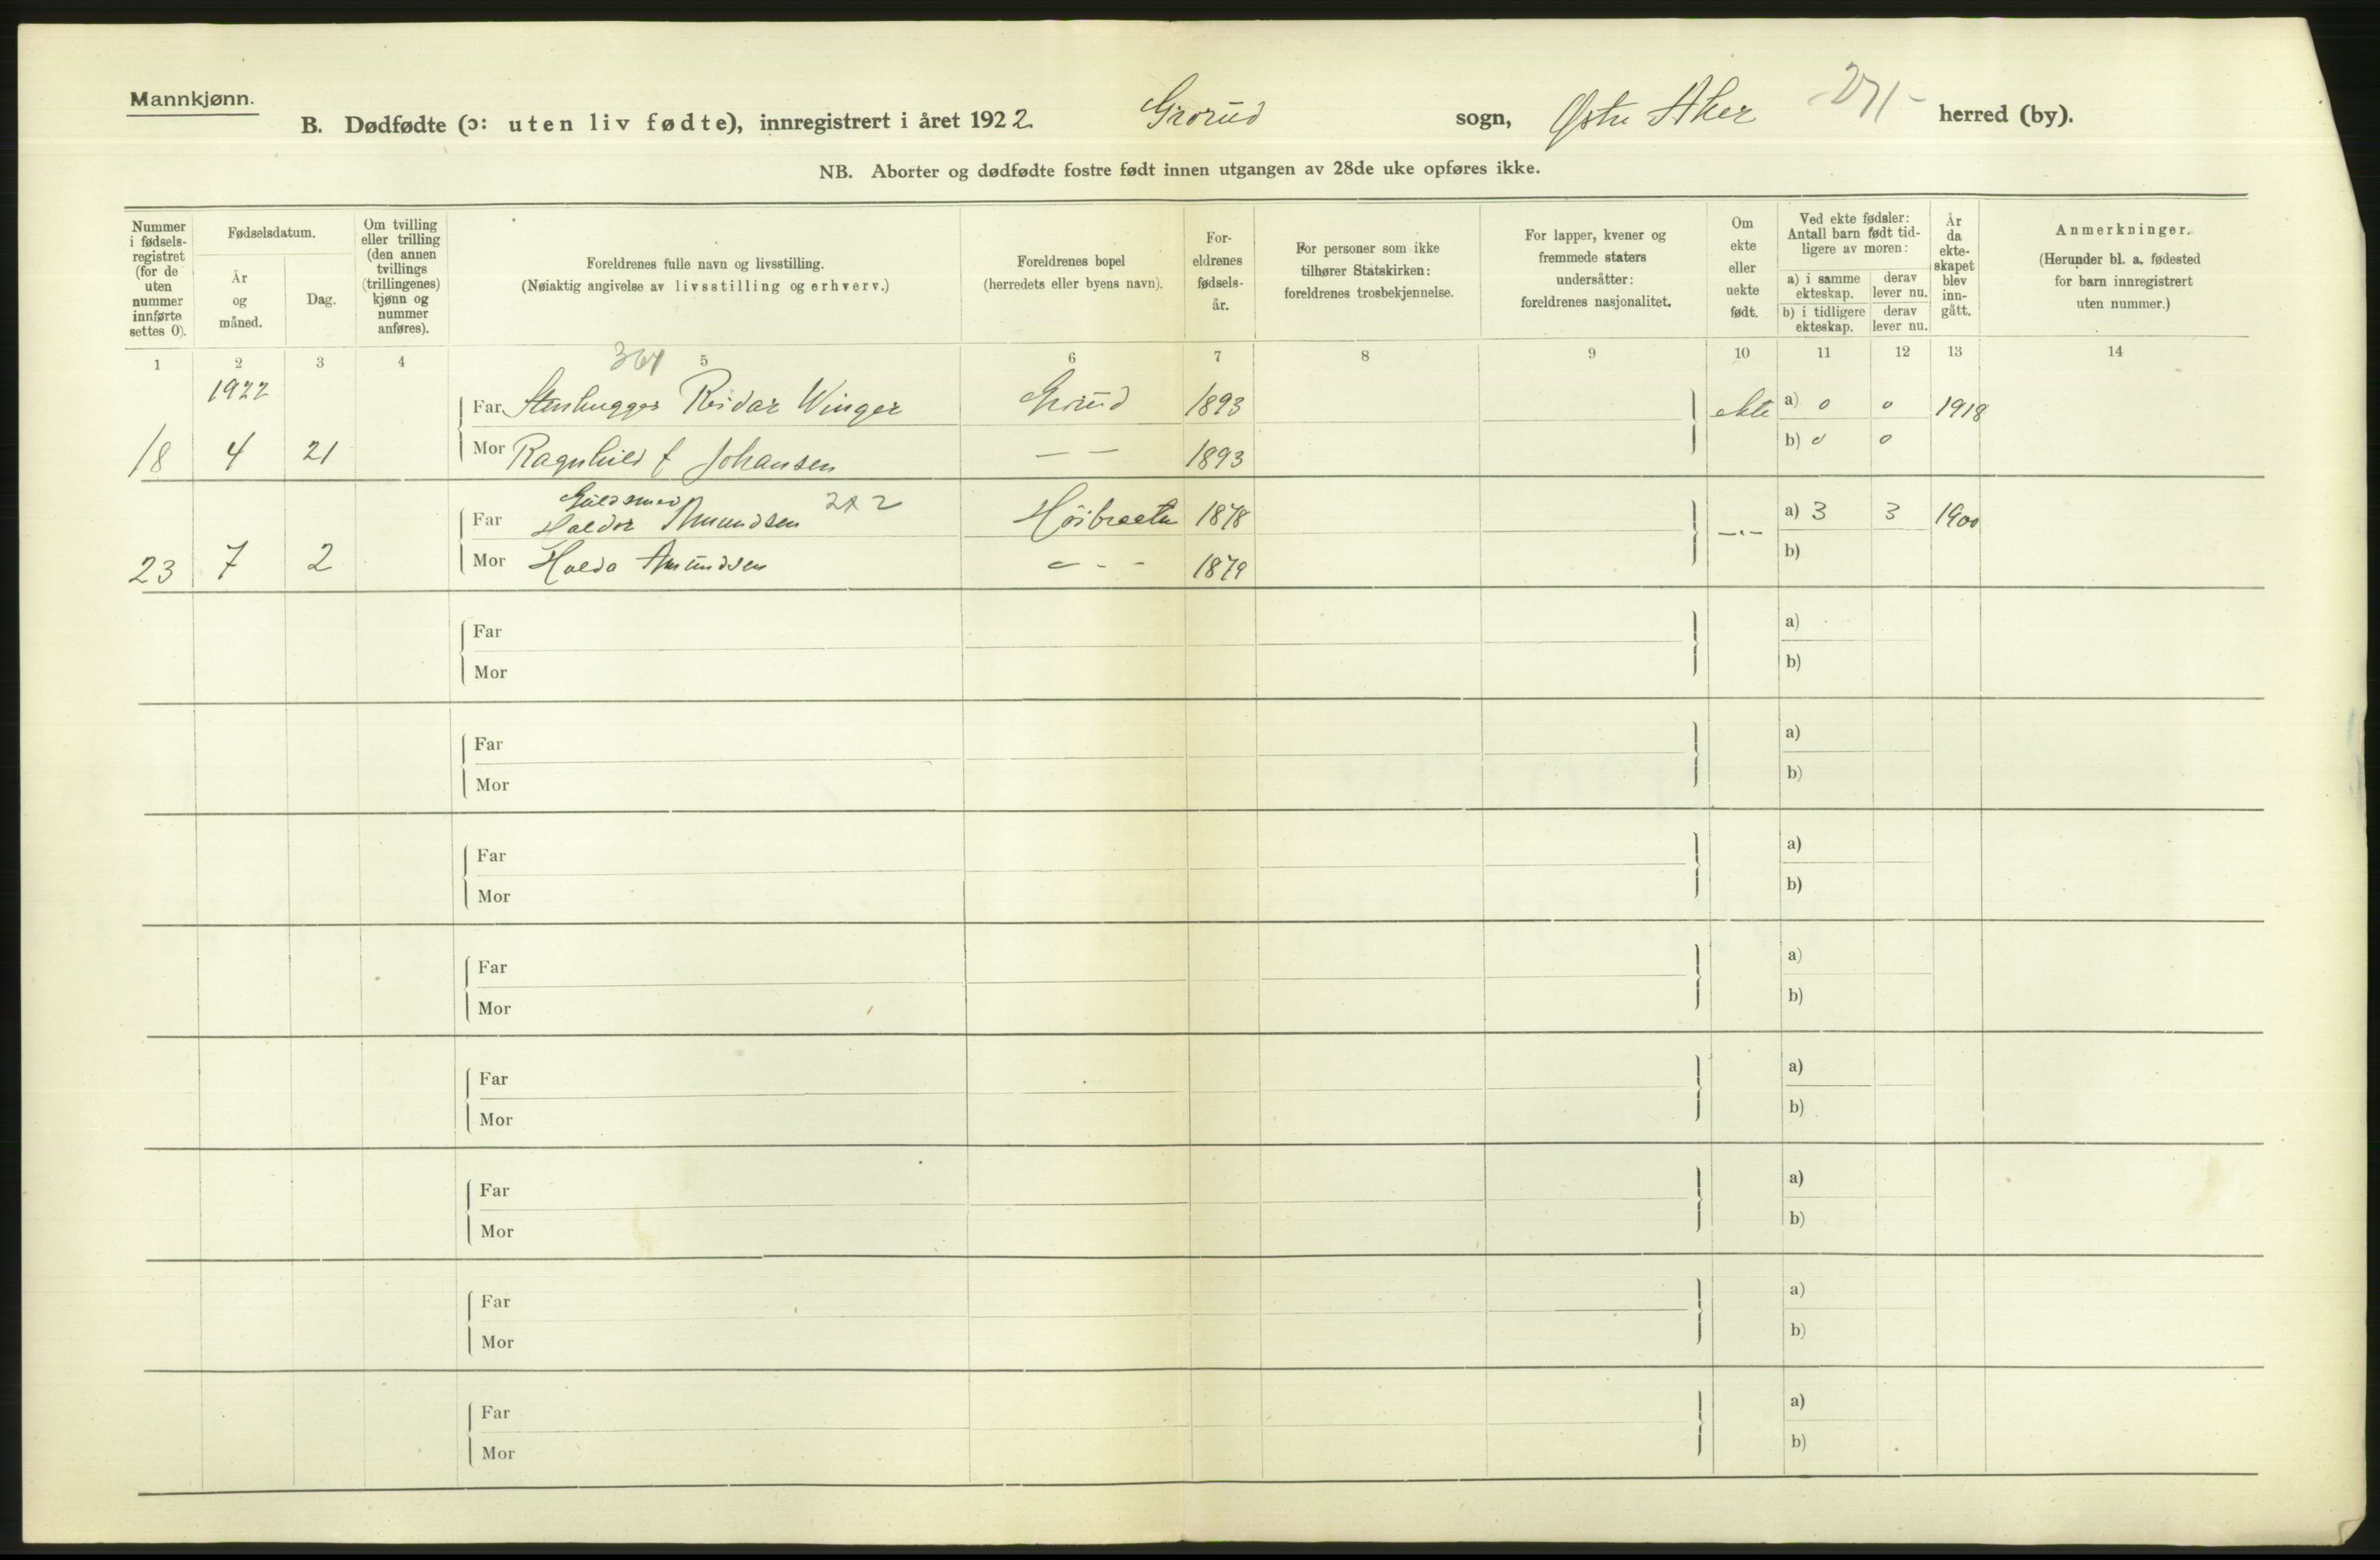 Mannkjønn.
B. Dødfødte (ɔ: uten liv fødte), innregistrert i året 1922 Grorud sogn, Østre Aker -271- herred (by).
NB. Aborter og dødfødte fostre født innen utgangen av 28de uke opføres ikke.
Nummer i fødsels- registret (for de uten nummer innførte settes 0).
Fødselsdatum.
År og måned.
Dag.
Om tvilling eller trilling (den annen tvillings (trillingenes) kjønn og nummer anføres).
Foreldrenes fulle navn og livsstilling.
(Nøiaktig angivelse av livsstilling og erhverv.)
Foreldrenes bopel
(herredets eller byens navn).
For- eldrenes fødsels- år.
For personer som ikke tilhører Statskirken: foreldrenes trosbekjennelse.
For lapper, kvener og fremmede staters undersåtter: foreldrenes nasjonalitet.
Om ekte eller uekte født.
Ved ekte fødsler: Antall barn født tid- ligere av moren:
a) i samme ekteskap. derav lever nu.
b) i tidligere ekteskap. derav lever nu.
År da ekte- skapet blev inn- gått.
Anmerkninger.
(Herunder bl. a. fødested for barn innregistrert uten nummer.)
1 2 3 4 5 6 7 8 9 10 11 12 13 14
1922
Far Stenhugger Reidar Winger Grorud 1893 ekte a) 0 0 1918
18 4 21 Mor Ragnhild f Johansen — — 1893 b) 0 0
Guldsmed
Far Haldor Amundsen Høibraaten 1878 —"— a) 3 3 1900
23 7 2 Mor Hulda Amundsen - - - 1879 b)
Far a)
Mor b)
Far a)
Mor b)
Far a)
Mor b)
Far a)
Mor b)
Far a)
Mor b)
Far a)
Mor b)
Far a)
Mor b)
Far a)
Mor b)